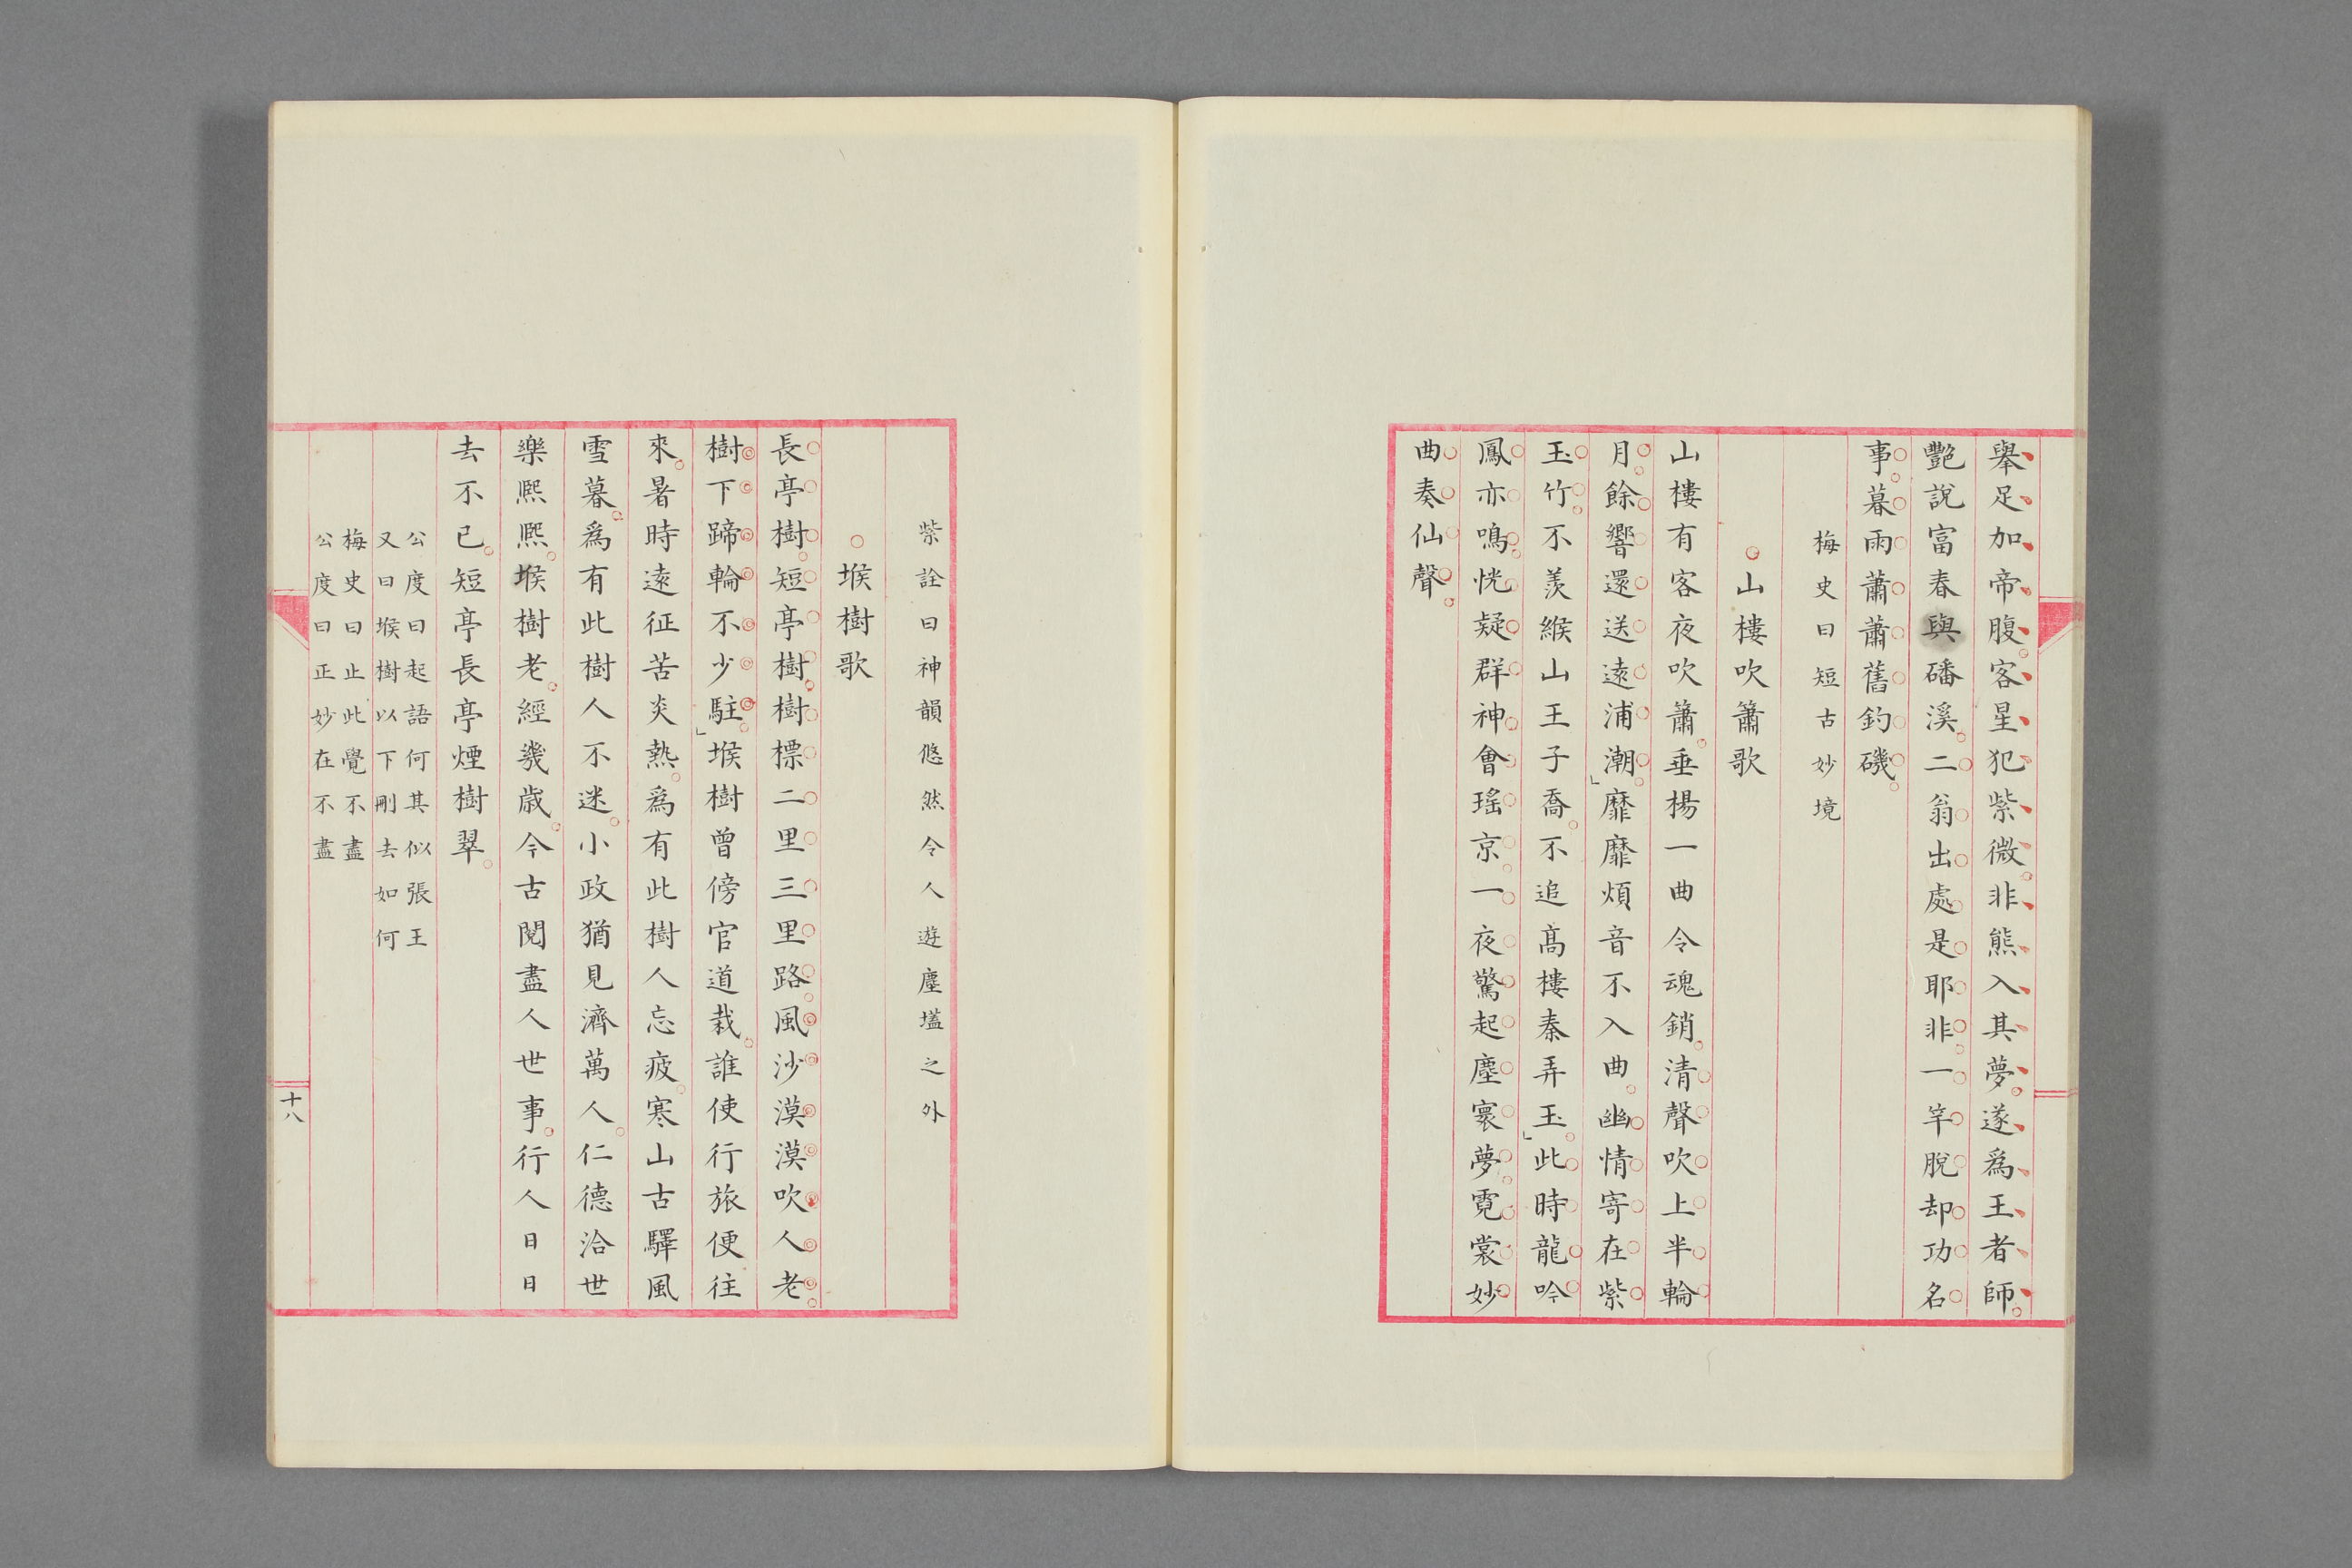 舉足加帝腹客星犯紫微非熊入其夢遂爲王者師
艷說富春與磻溪二翁出處是耶非一竿脫却功名
事暮雨蕭蕭舊釣磯
梅史曰短古妙境
山樓吹簫歌
山樓有客夜吹簫垂楊一曲令魂銷清聲吹上半輪
月餘響還送遠浦潮靡靡煩音不入曲幽情寄在紫
玉竹不羨緱山王子喬不追高樓秦弄玉此時龍吟
鳳亦鳴恍疑群神會瑤京一夜驚起塵寰夢霓裳妙
曲奏仙聲
紫詮曰神韻悠然令人遊塵壒之外
堠樹歌
長亭樹短亭樹樹標二里三里路風沙漠漠吹人老
樹下蹄輪不少駐堠樹曾傍官道栽誰使行旅便往
來暑時遠征苦炎熱爲有此樹人忘疲寒山古驛風
雪暮爲有此樹人不迷小政猶見濟萬人仁德洽世
樂熙熙堠樹老經幾歲今古閱盡人世事行人日日
去不已短亭長亭煙樹翠
公度曰起語何其似張王
又曰堠樹以下刪去如何
梅史曰止此覺不盡
公度曰正妙在不盡
十八